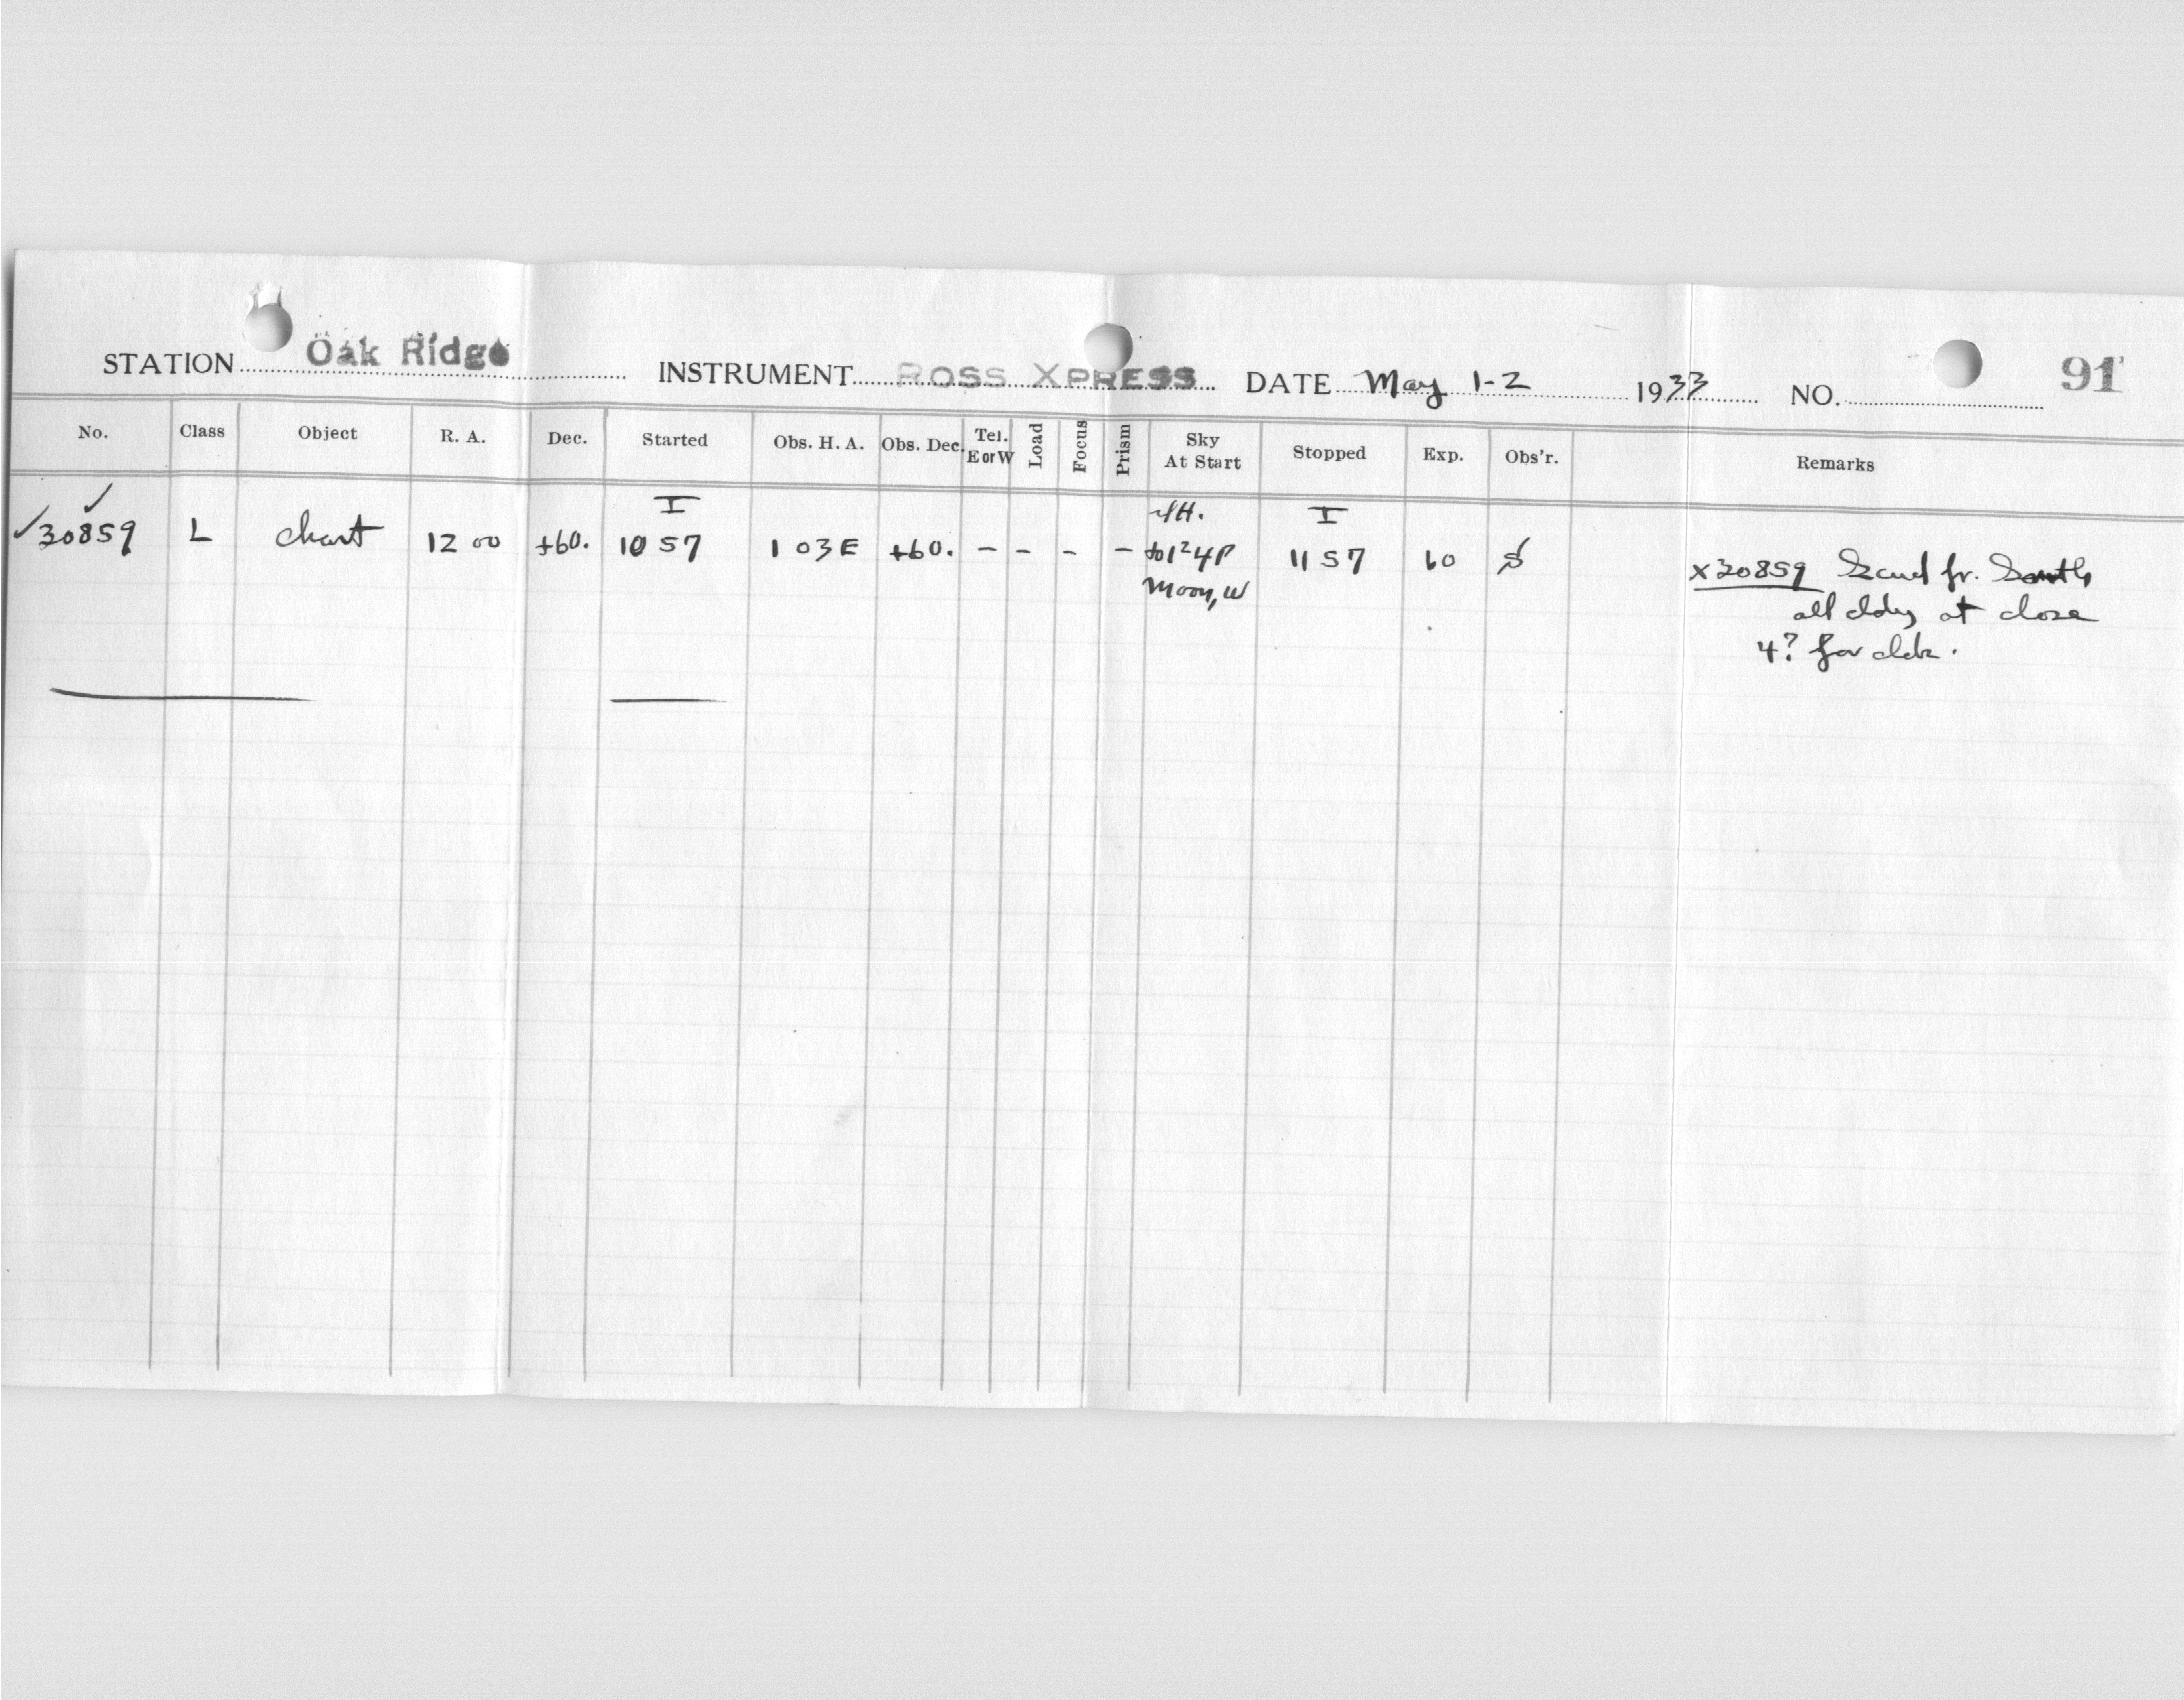 STATION Oak Ridge INSTRUMENT ROSS XPRESS DATE May 1-2 1933 NO. 91
No. Class Object R. A. Dec. Started Obs. H. A. Obs. Dec. Tel. E or W Load Focus Prism Sky At Start Stopped Exp. Obs'r. Remarks
I I
✓30859 L chart 12 00 +60. 10 57 1 03E +60. - - - - 11 57 60
Moon, W
X30859 Scud fr. South
all cldy at close
4? for